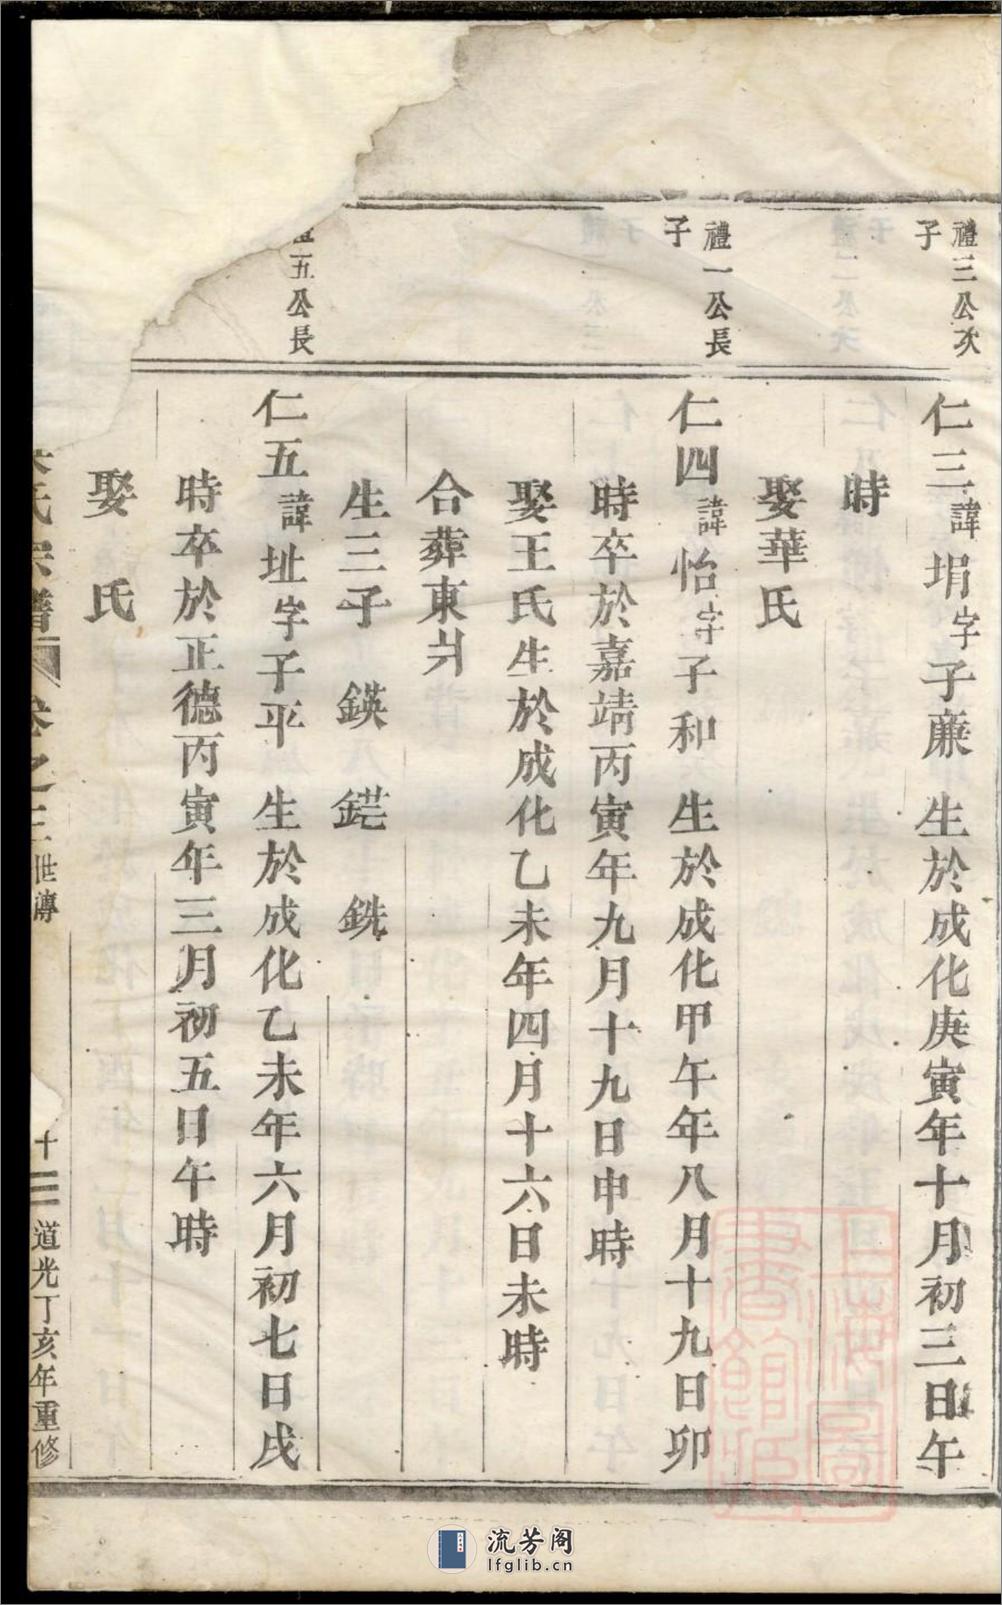 禮三公次
子
仁三諱埍字子蔗 生於成化庚寅年十月初三日午
時
娶華氏
禮一公長
子
仁四諱怡字子和 生於成化甲午年八月十九日卯
時卒於嘉靖丙寅年九月十九日申時
娶王氏生於成化乙未年四月十六日未時
合葬東爿
生三子 鍈 鋩 銑
五公長
仁五諱址字子平 生於成化乙未年六月初七日戌
時卒於正德丙寅年三月初五日午時
娶 氏
氏宗譜 卷之三世傳 十三 道光丁亥年重修
上海圖書館藏
流芳阁
lfglib.cn